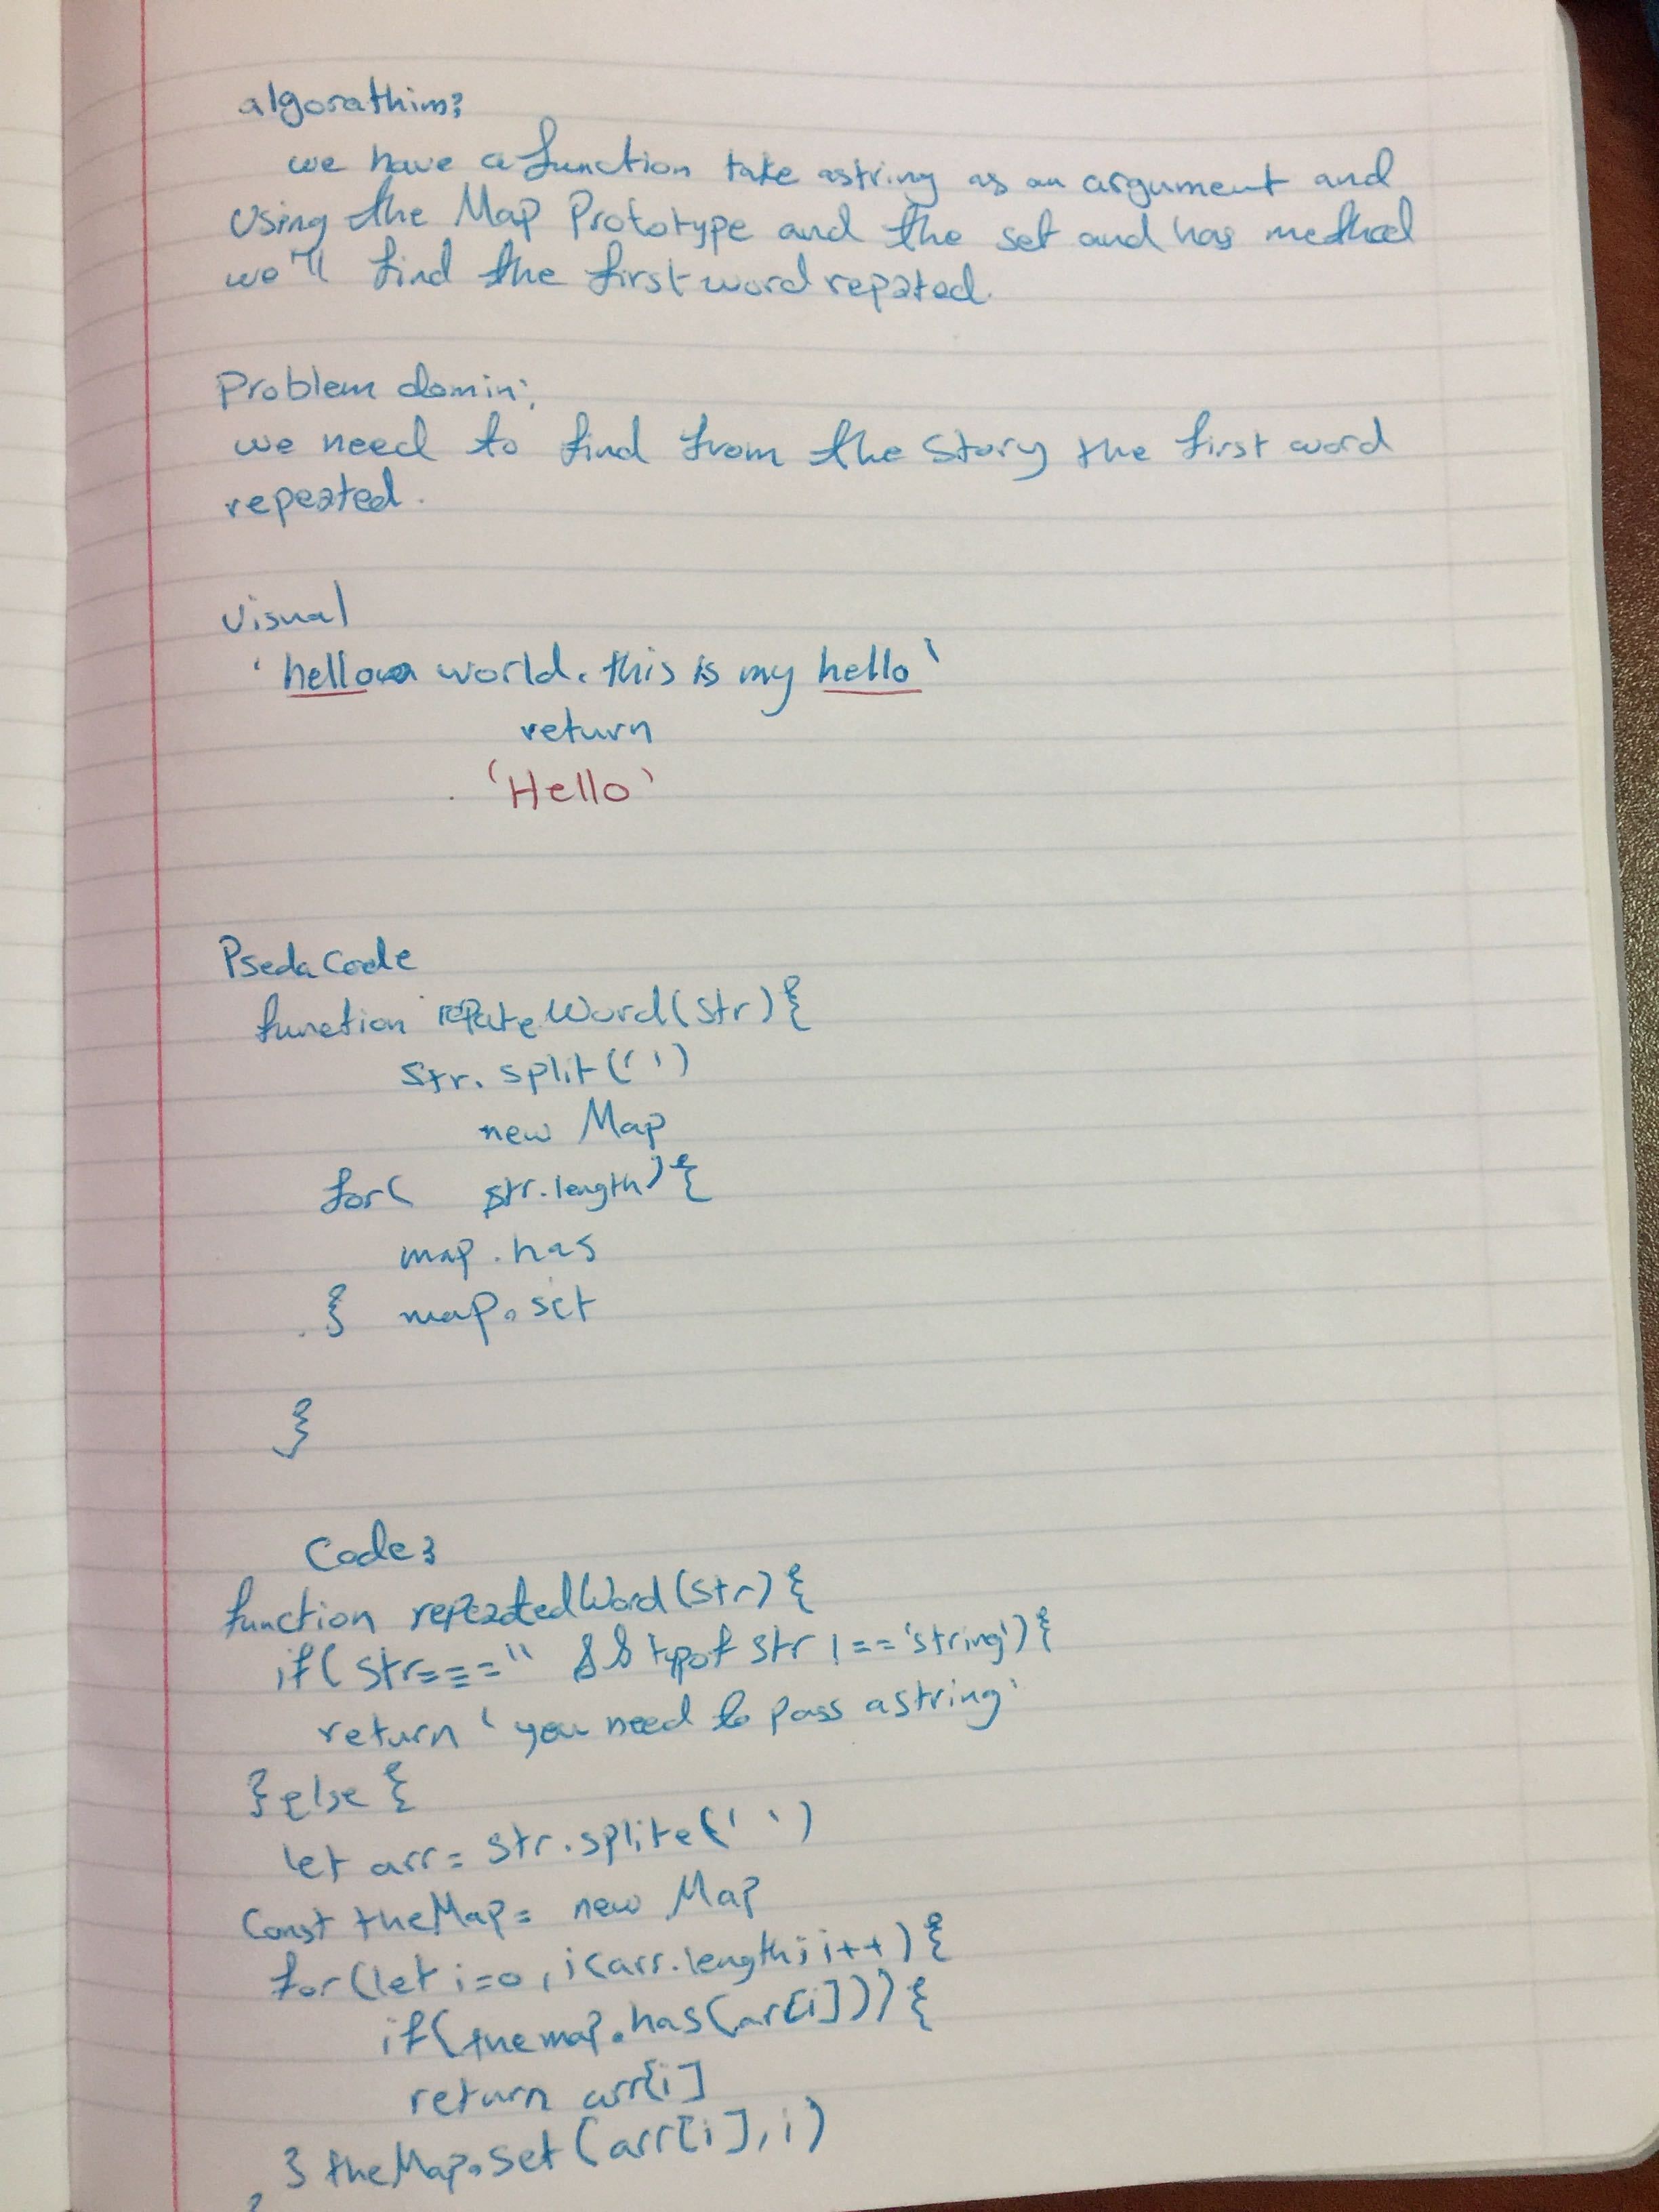 algorathim:
we have a function take astring as an argument and
Using the Map Prototype and the set and has method
we'll find the first word repated.
Problem domin:
we need to find from the story the first word
repeated.
visual
'hello world. this is my hello'
return
'Hello'
Pseda Code
function repate Word(str){
str. split(' ')
new Map
for( str.length){
map.has
} map.set
}
Code:
function repeatedWord(str){
if( str==='' && typof str !== 'string'){
return 'you need to pass astring'
}else{
let arr= str.splite(' ')
Const theMap= new Map
for(let i=0, i<arr.length; i++){
if(themap.has(arr[i])){
return arr[i]
} theMap.set(arr[i],i)
}